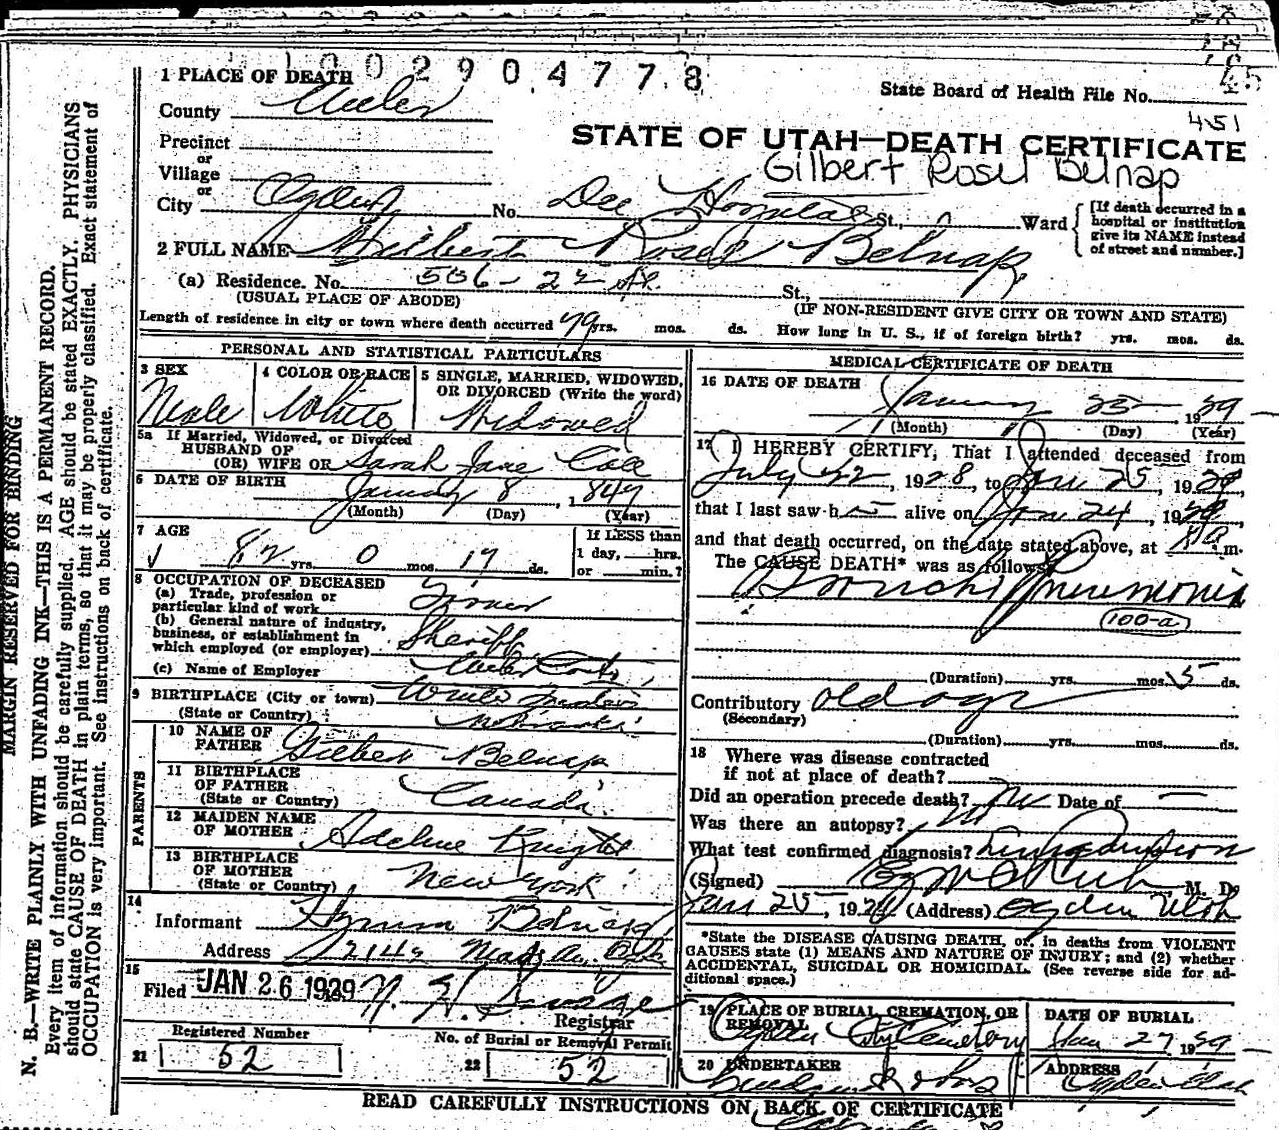 1 0 0 2 9 0 4 7 7 8
1 PLACE OF DEATH
State Board of Health File No. 45
County Weber
451
STATE OF UTAH—DEATH CERTIFICATE
Precinct
or
Village
or
Gilbert Rosel Belnap
City Ogden No. Dee Hospital St., Ward
[If death occurred in a
hospital or institution
give its NAME instead
of street and number.]
2 FULL NAME Gilbert Rosel Belnap
(a) Residence. No. 536 - 22 St. St.,
(USUAL PLACE OF ABODE) (IF NON-RESIDENT GIVE CITY OR TOWN AND STATE)
Length of residence in city or town where death occurred 79 yrs. mos. ds. How long in U. S., if of foreign birth? yrs. mos. ds.
PERSONAL AND STATISTICAL PARTICULARS
3 SEX
Male
4 COLOR OR RACE
White
5 SINGLE, MARRIED, WIDOWED,
OR DIVORCED (Write the word)
Widowed
5a If Married, Widowed, or Divorced
HUSBAND OF
(OR) WIFE OR Sarah Jane Cole
6 DATE OF BIRTH
January 8, 1847
(Month) (Day) (Year)
7 AGE
82 yrs. 0 mos. 17 ds.
If LESS than
1 day, hrs.
or min.?
8 OCCUPATION OF DECEASED
(a) Trade, profession or
particular kind of work
(b) General nature of industry,
business, or establishment in
which employed (or employer) Sheriff
(c) Name of Employer Weber County
9 BIRTHPLACE (City or town)
(State or Country)
PARENTS
10 NAME OF
FATHER Gilbert Belnap
11 BIRTHPLACE
OF FATHER
(State or Country) Canada
12 MAIDEN NAME
OF MOTHER Adeline Knight
13 BIRTHPLACE
OF MOTHER
(State or Country) New York
14
Informant Hyrum Belnap
Address
15
Filed JAN 26 1929
Registrar
Registered Number
21 52
No. of Burial or Removal Permit
22 52
MEDICAL CERTIFICATE OF DEATH
16 DATE OF DEATH
January 25 1929
(Month) (Day) (Year)
17 I HEREBY CERTIFY, That I attended deceased from
July 22, 1928, to Jan 25, 1929
that I last saw h alive on Jan 24, 1929
and that death occurred, on the date stated above, at m.
The CAUSE DEATH* was as follows:
Bronchi Pneumonia
100-a
(Duration) yrs. mos. 5 ds.
Contributory old age
(Secondary)
(Duration) yrs. mos. ds.
18 Where was disease contracted
if not at place of death?
Did an operation precede death? no Date of
Was there an autopsy? no
What test confirmed diagnosis?
(Signed) M. D.
Jan 25, 1929 (Address) Ogden Utah
*State the DISEASE CAUSING DEATH, or, in deaths from VIOLENT
CAUSES state (1) MEANS AND NATURE OF INJURY; and (2) whether
ACCIDENTAL, SUICIDAL OR HOMICIDAL. (See reverse side for ad-
ditional space.)
19 PLACE OF BURIAL, CREMATION, OR
REMOVAL
Ogden City Cemetery
DATE OF BURIAL
Jan 27 1929
20 UNDERTAKER
ADDRESS
Ogden Utah
READ CAREFULLY INSTRUCTIONS ON BACK OF CERTIFICATE
MARGIN RESERVED FOR BINDING
N. B.—WRITE PLAINLY WITH UNFADING INK—THIS IS A PERMANENT RECORD.
Every item of information should be carefully supplied. AGE should be stated EXACTLY. PHYSICIANS
should state CAUSE OF DEATH in plain terms, so that it may be properly classified. Exact statement of
OCCUPATION is very important. See instructions on back of certificate.